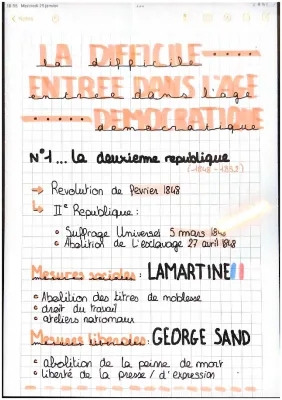 Mercredi 25 janvier
LA DIFFICILE
la difficile
ENTREE DANS L'AGE
entree dans l'âge
DEMOCRATIQUE
democratique
N°1... La deuxieme republique
(-1848 - 1852)
→ Revolution de fevrier 1848
↳ IIe Republique :
• Suffrage Universel 5 mars 1848
• Abolition de L'esclavage 27 avril 1848
Mesures sociales : LAMARTINE
• Abolition des titres de noblesse
• droit du travail
• ateliers nationaux
Mesures liberales : GEORGE SAND
• abolition de la peine de mort
• liberté de la presse / d'expression